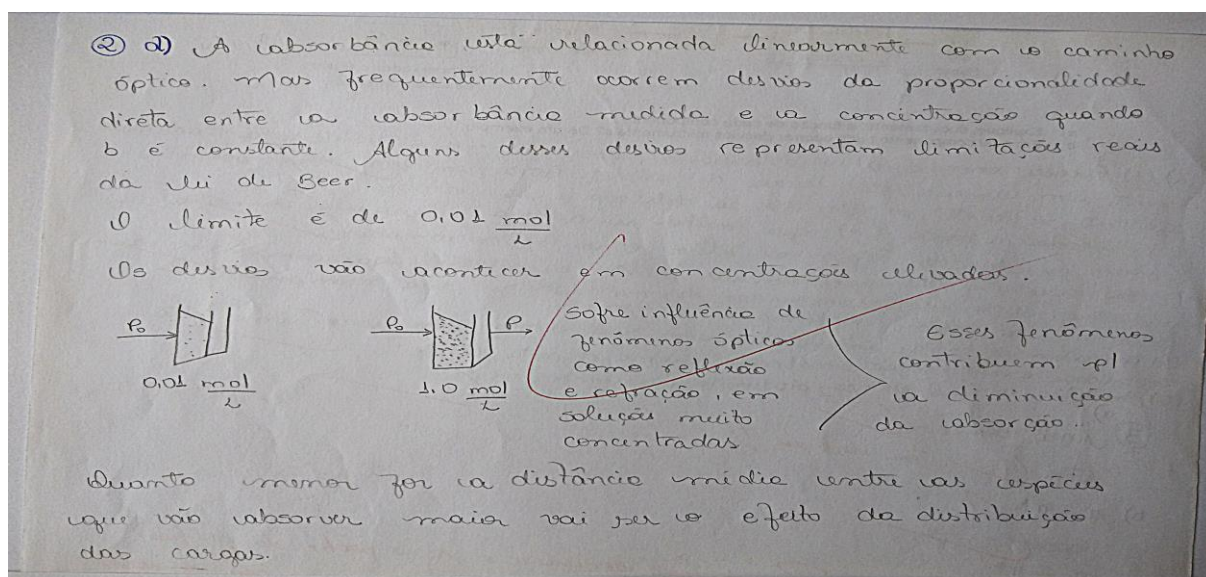 ② d) A absorbância está relacionada linearmente com o caminho
óptico. Mas frequentemente ocorrem desvios da proporcionalidade
direta entre a absorbância medida e a concentração quando
b é constante. Alguns desses desvios representam limitações reais
da lei de Beer.
O limite é de 0,01 mol/L
Os desvios vão acontecer em concentrações elevadas.
P₀
0,01 mol/L
P₀ P
1,0 mol/L
Sofre influência de
fenômenos ópticos
como reflexão
e refração, em
soluções muito
concentradas
Esses fenômenos
contribuem p/
a diminuição
da absorção.
Quanto menor for a distância média entre as espécies
que vão absorver maior vai ser o efeito da distribuição
das cargas.